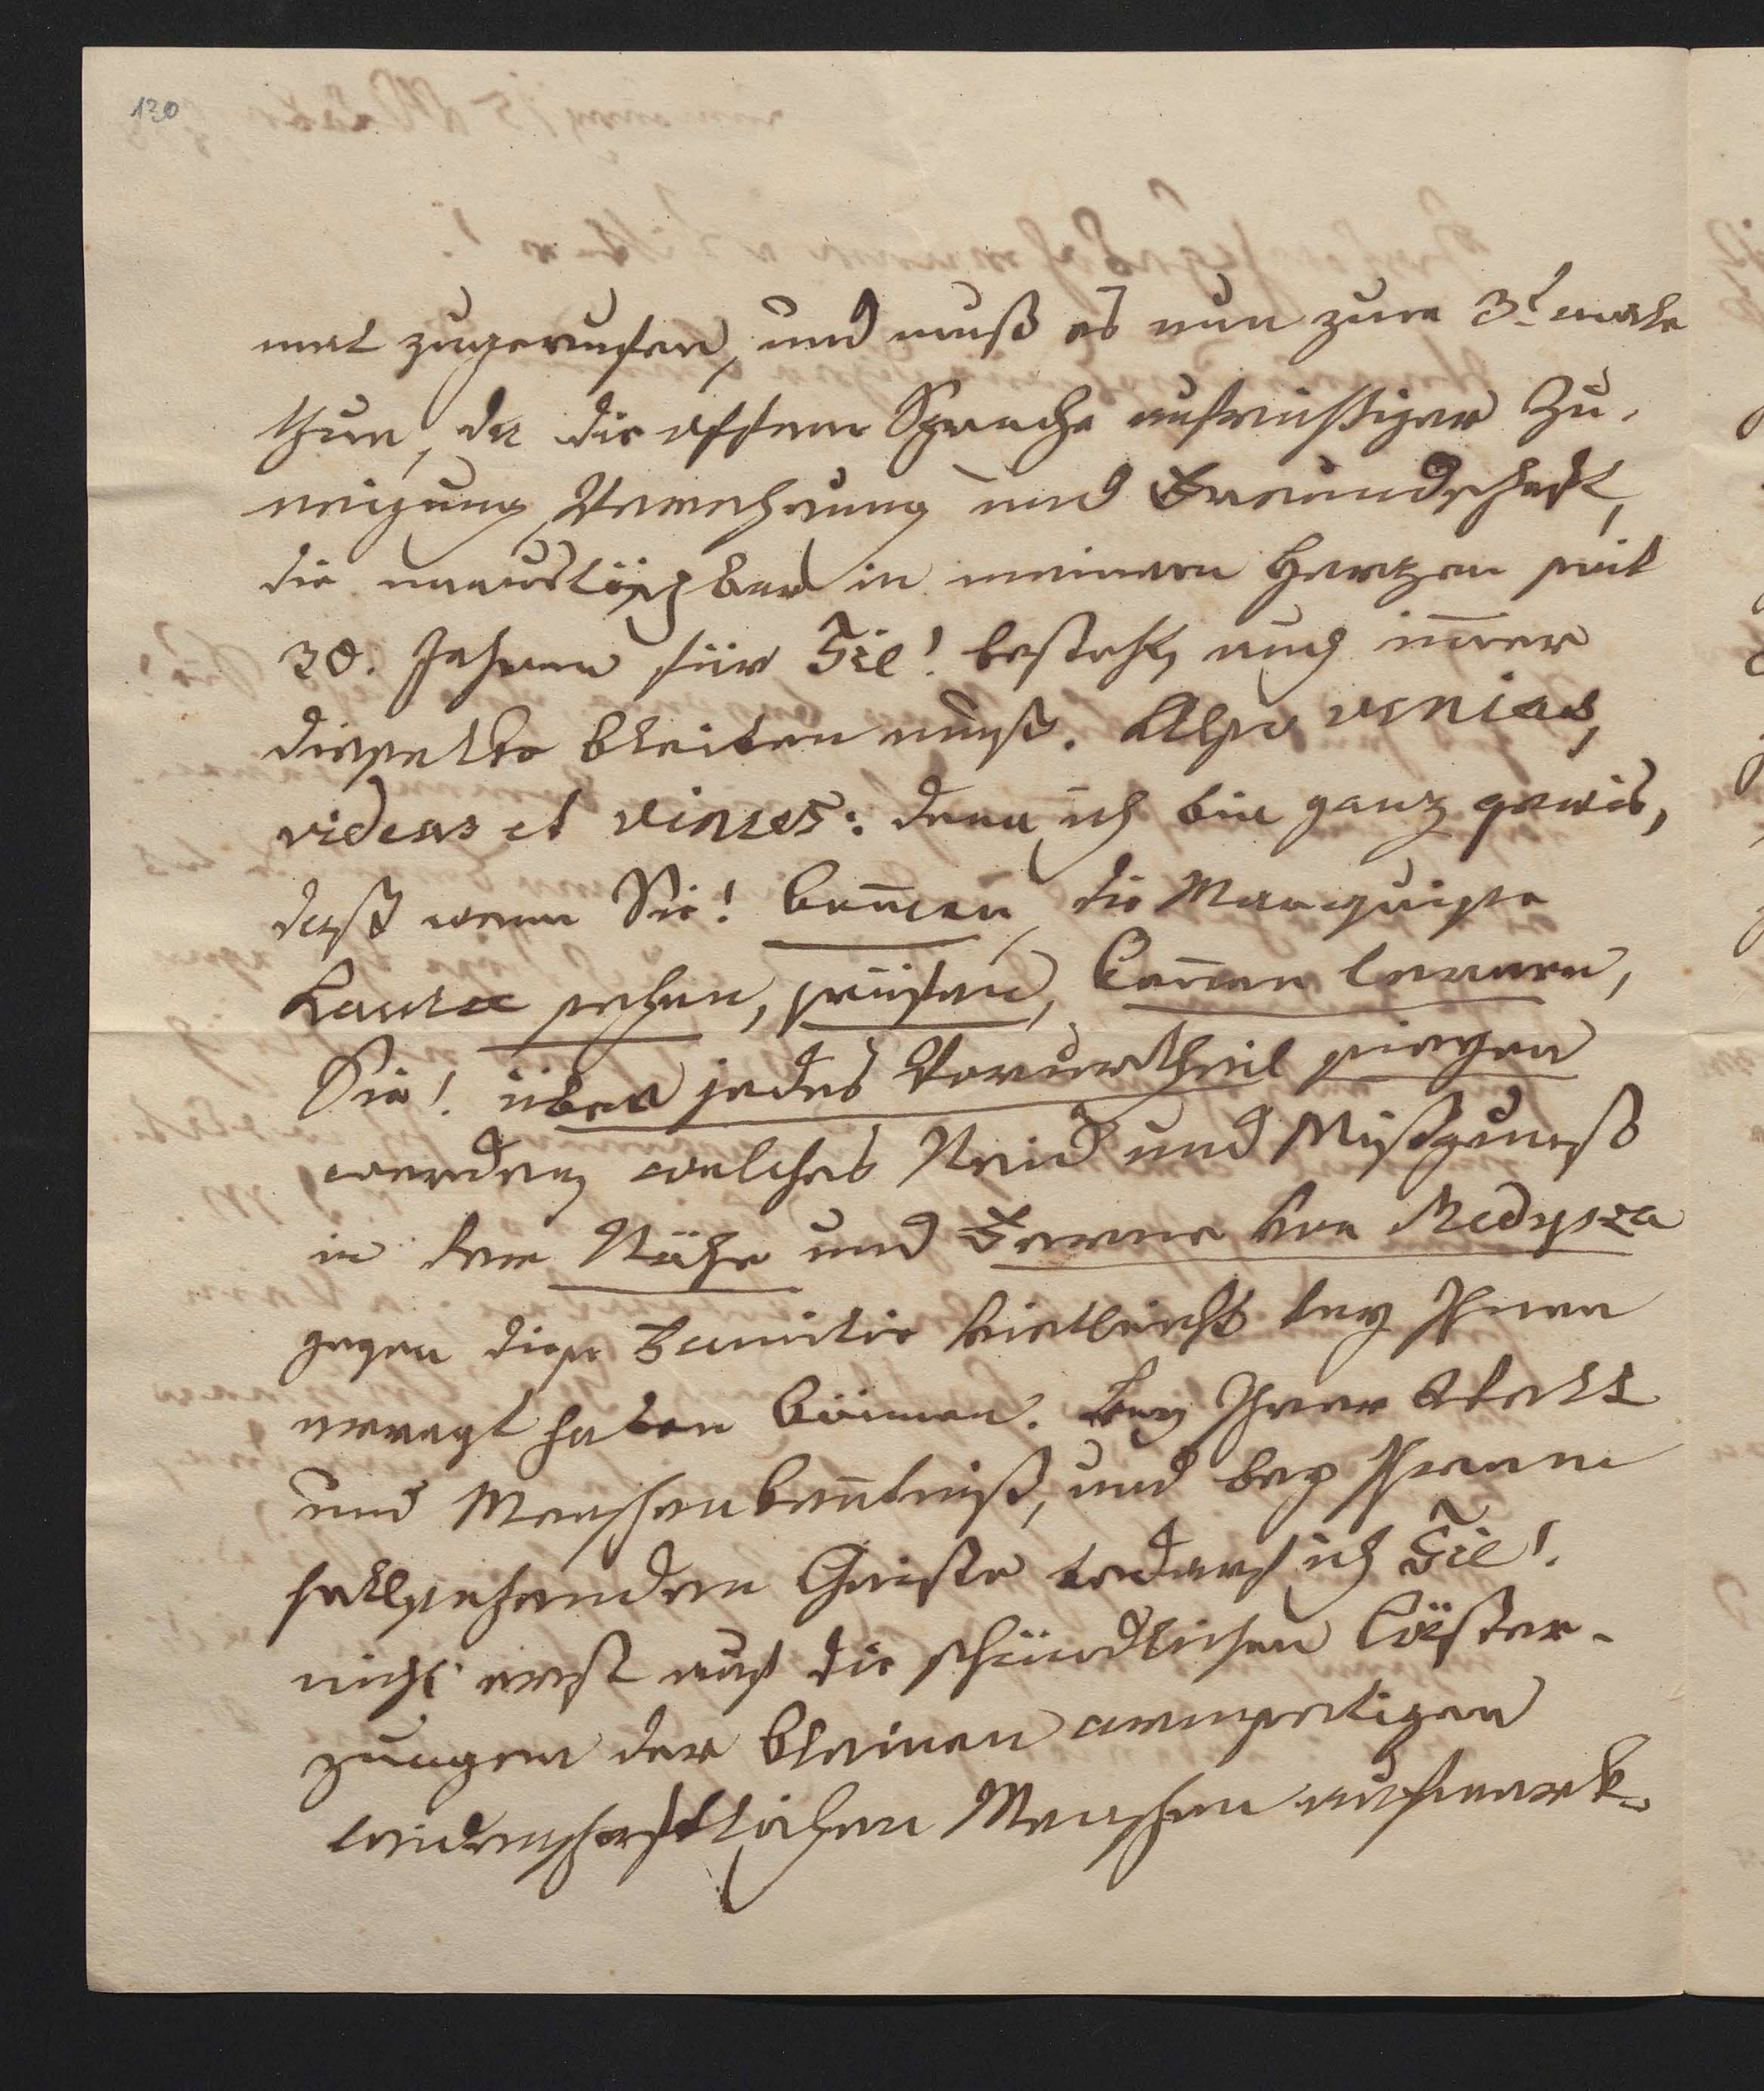 130
mal zugerufen, und muß es nun zum 3t. male
thun, da die offene Sprache aufrichtiger Zu-
neigung, Verehrung und Freundschaft,
die unauslöschbar in meinem Herzen seit
30. Jahren für Sie! besteht, auch im̅er
dieselbe bleiben muß. Also venias,
videas et vinces: denn ich bin ganz gewis,
daß wenn Sie! kom̅en, die Marquise
Laura sehen, prüfen, ken̅en lernen,
Sie! über jedes Vorurtheil siegen
werden, welches Neid und Mißgunst
in der Nähe und Ferne von Medysza
gegen diese Familie vielleicht bey Ihnen
erregt haben können. Bey Ihrer Welt
und Menschenken̅tniß, und bey Ihrem
hellsehenden Geiste bedarf ich Sie!
nicht erst auf die schändlichen Läster-
zungen der kleinen armseligen
leidenschaftlichen Menschen aufmerk-